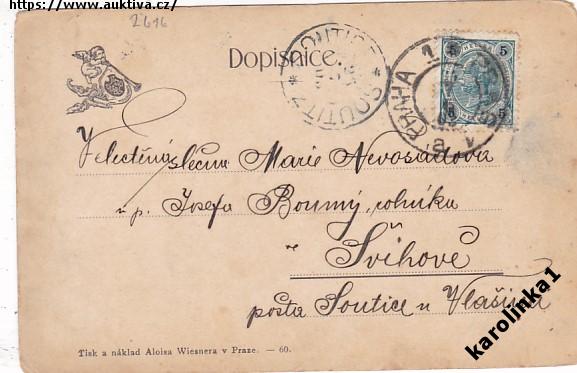 https://www.auktiva.cz/
2616
Dopisnice.
SOUTICE
SOUTITZ
PRAHA 1
5 5
5 5
Velectěná slečna Marie Nevosadova
u p. Josefa Boumý, rolníka
ve
Švihově
pošta Soutice u Vlašimě
Tisk a náklad Aloisa Wiesnera v Praze. — 60.
karolinka1